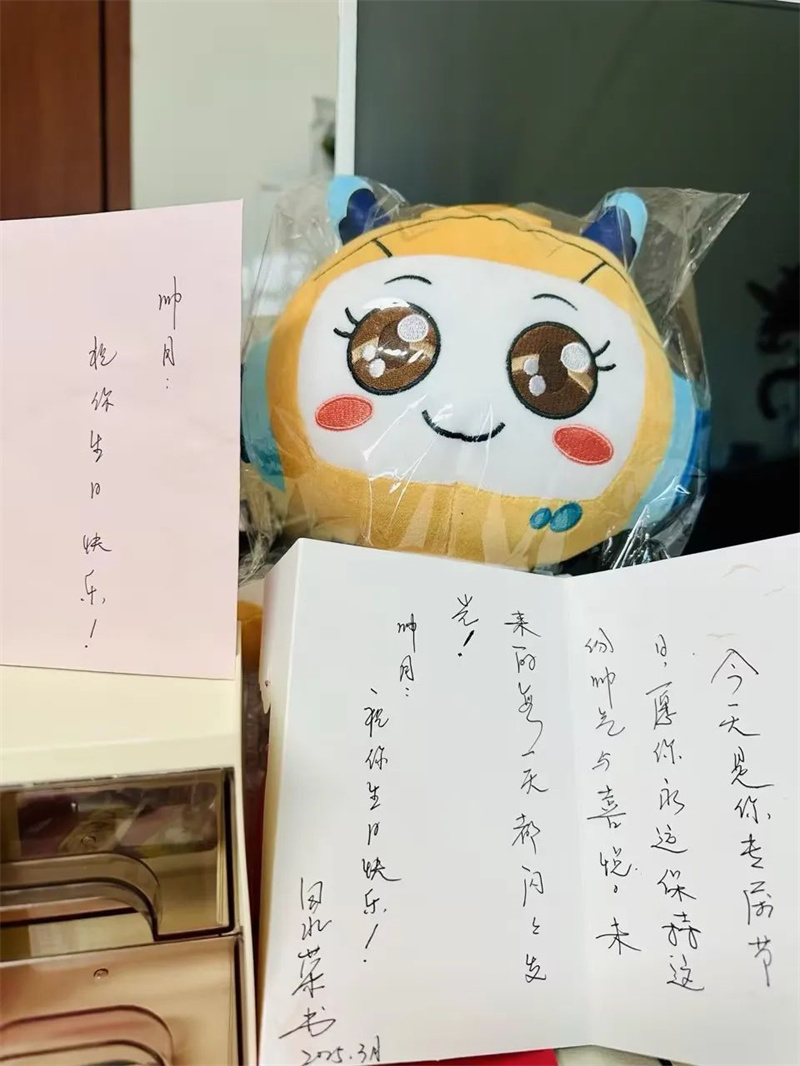 帅月：
祝你生日快乐！
今天是你专属节
日，愿你永远保持这
份帅气与喜悦。未
来的每一天都闪々发
光！
帅月：
祝你生日快乐！
书
2025.3月